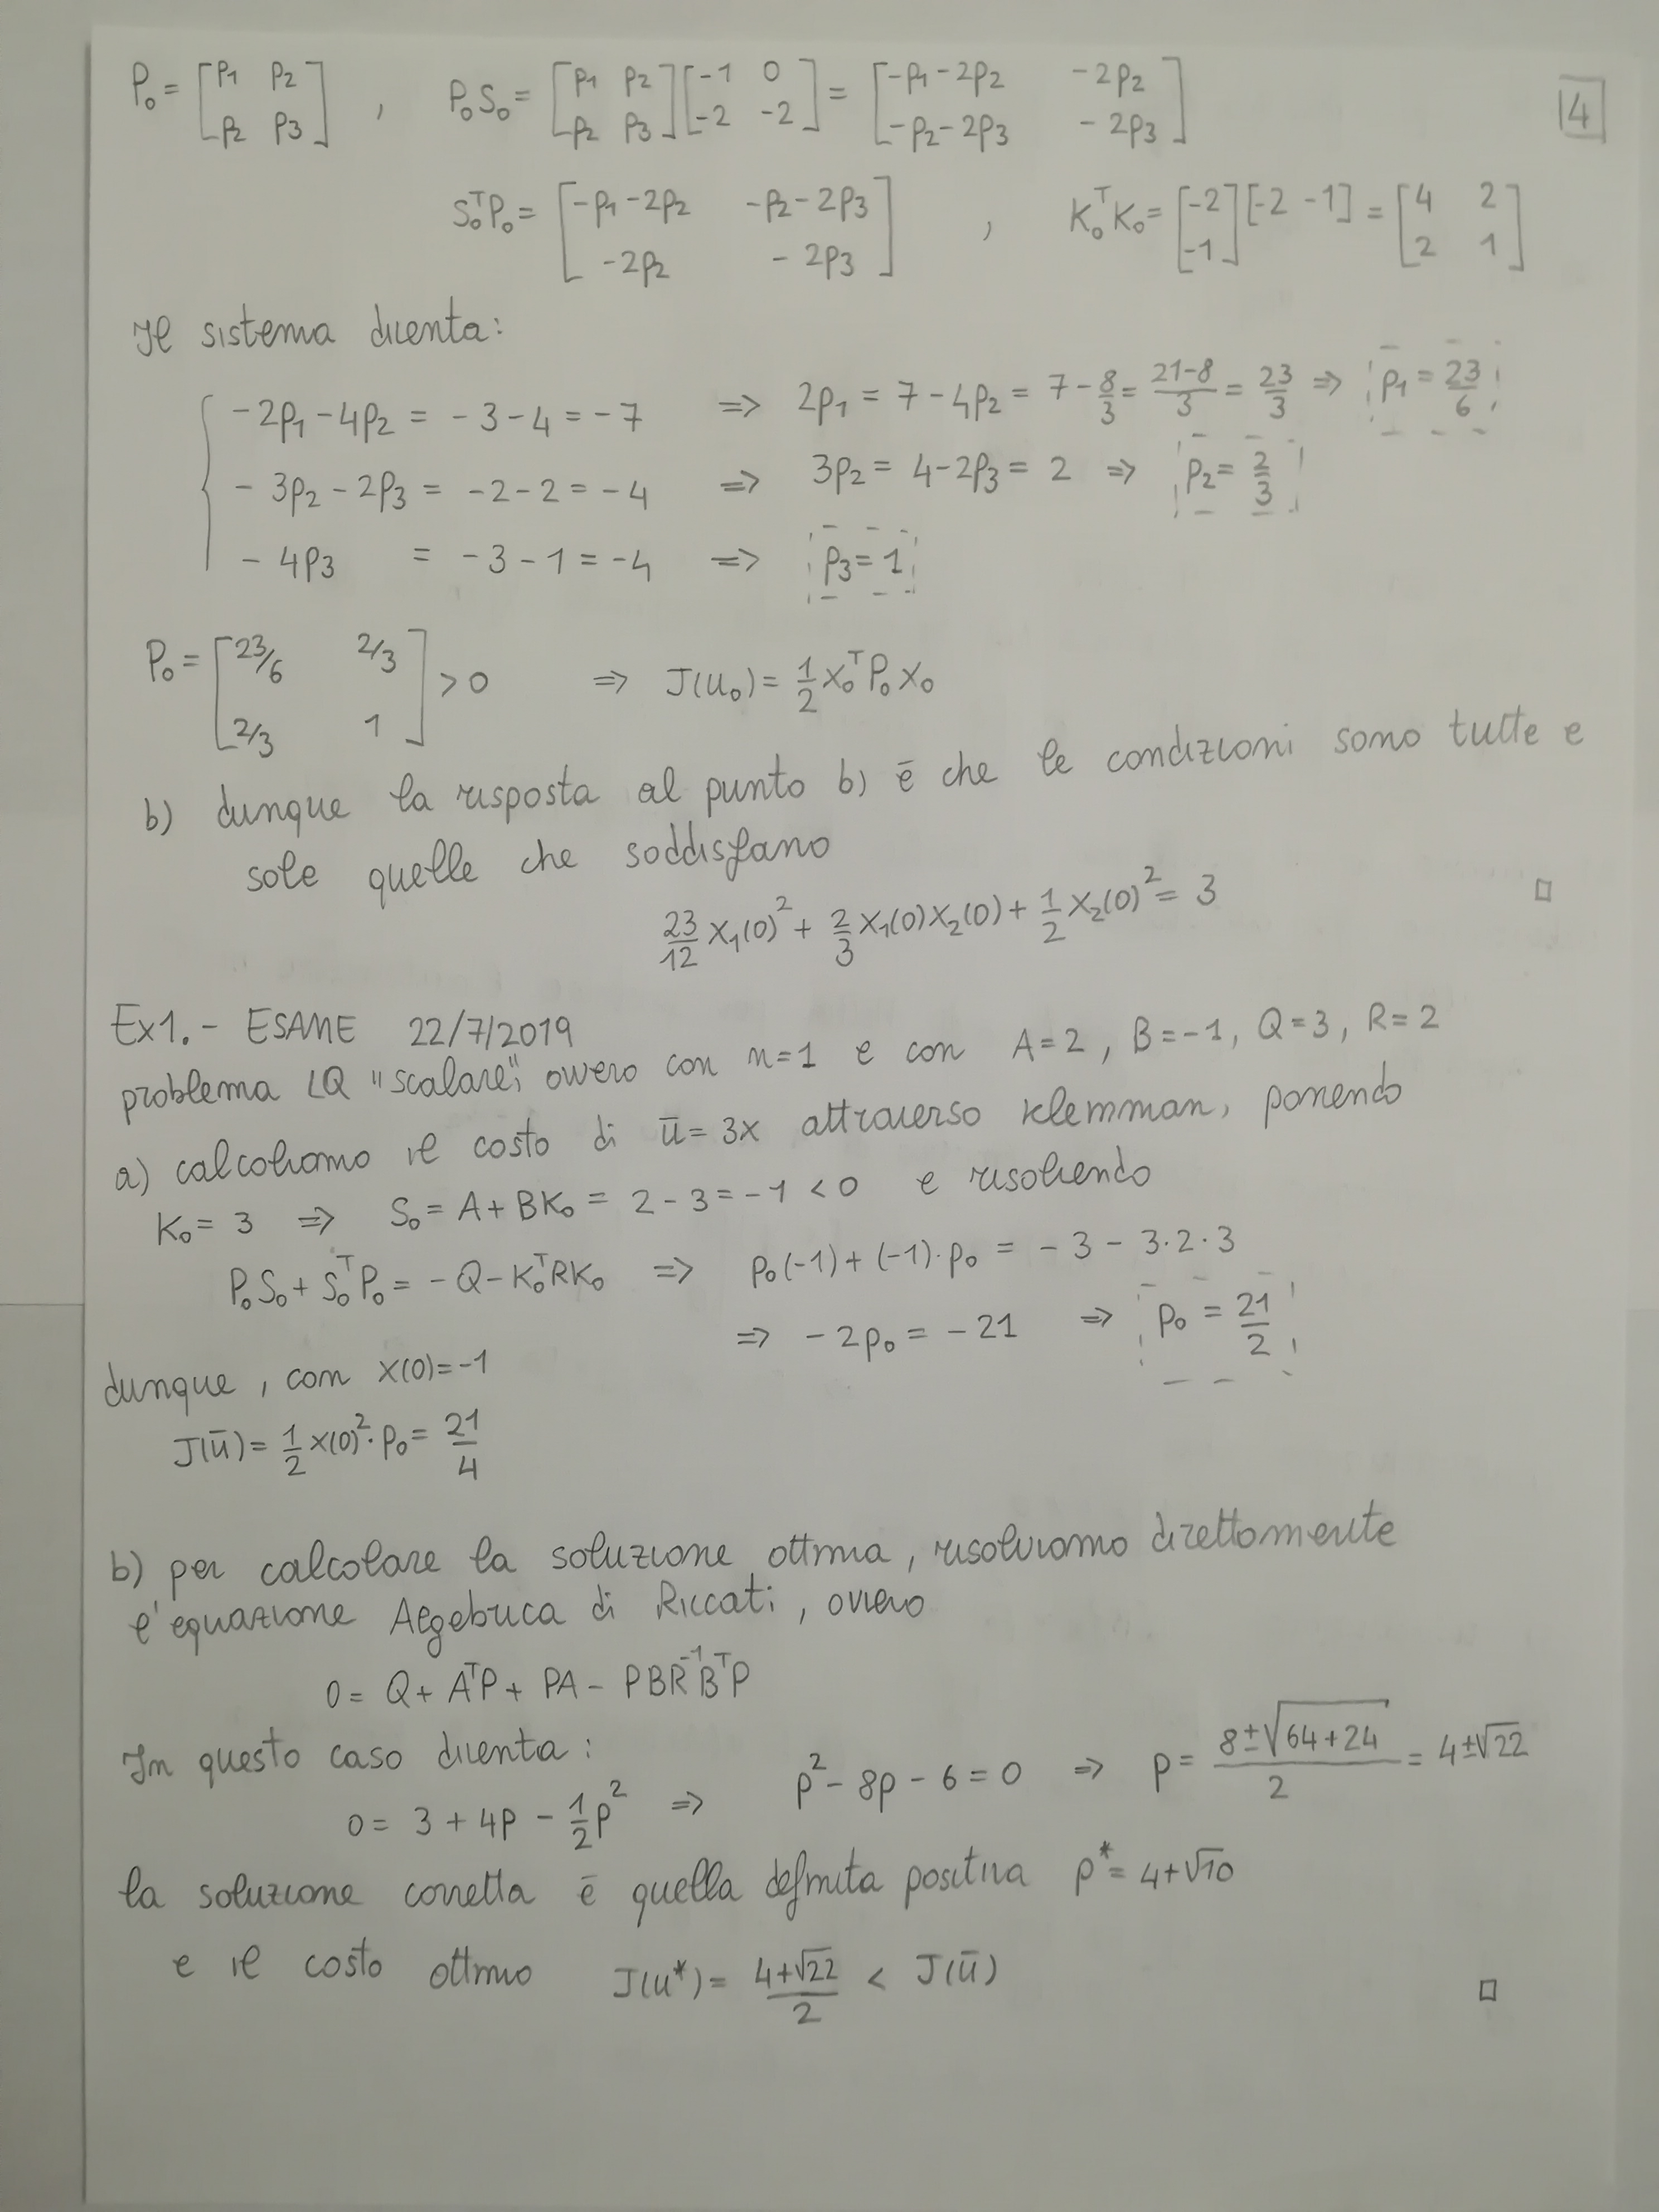 P₀ = [p₁ p₂; p₂ p₃] , P₀S₀ = [p₁ p₂; p₂ p₃][-1 0; -2 -2] = [-p₁-2p₂ -2p₂; -p₂-2p₃ -2p₃]
4
S₀ᵀP₀ = [-p₁-2p₂ -p₂-2p₃; -2p₂ -2p₃] , K₀ᵀK₀ = [-2; -1][-2 -1] = [4 2; 2 1]
Il sistema diventa:
-2p₁-4p₂ = -3-4 = -7 => 2p₁ = 7-4p₂ = 7-8/3 = (21-8)/3 = 23/3 => p₁ = 23/6
-3p₂-2p₃ = -2-2 = -4 => 3p₂ = 4-2p₃ = 2 => p₂ = 2/3
-4p₃ = -3-1 = -4 => p₃ = 1
P₀ = [23/6 2/3; 2/3 1] > 0 => J(u₀) = 1/2 x₀ᵀP₀x₀
b) dunque la risposta al punto b) è che le condizioni sono tutte e
sole quelle che soddisfano
23/12 x₁(0)² + 2/3 x₁(0)x₂(0) + 1/2 x₂(0)² = 3 □
Ex1.- ESAME 22/7/2019
problema LQ "scalare", ovvero con n=1 e con A=2, B=-1, Q=3, R=2
a) calcoliamo il costo di ū=3x attraverso Klemman, ponendo
K₀ = 3 => S₀ = A+BK₀ = 2-3 = -1 < 0 e risolvendo
P₀S₀ + S₀ᵀP₀ = -Q-K₀ᵀRK₀ => p₀(-1)+(-1)·p₀ = -3-3·2·3
=> -2p₀ = -21 => p₀ = 21/2
dunque, con x(0)=-1
J(ū) = 1/2 x(0)²·p₀ = 21/4
b) per calcolare la soluzione ottima, risolviamo direttamente
l'equazione Algebrica di Riccati, ovvero
0 = Q + AᵀP + PA - PBR⁻¹BᵀP
In questo caso diventa:
0 = 3+4p-1/2p² => p²-8p-6=0 => p = (8±√(64+24))/2 = 4±√22
la soluzione corretta è quella definita positiva p* = 4+√10
e il costo ottimo J(u*) = (4+√22)/2 < J(ū) □